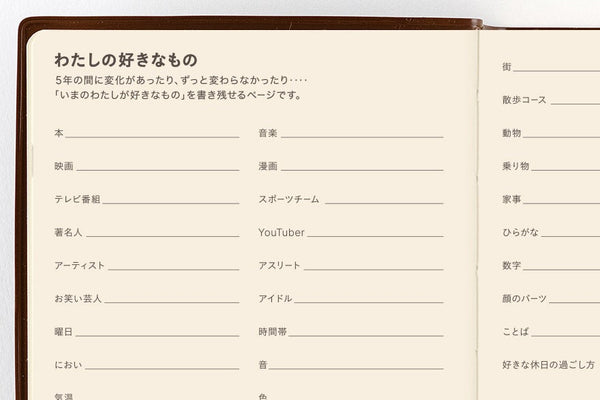 わたしの好きなもの
5年の間に変化があったり、ずっと変わらなかったり‥‥
「いまのわたしが好きなもの」を書き残せるページです。
本
映画
テレビ番組
著名人
アーティスト
お笑い芸人
曜日
におい
気温
音楽
漫画
スポーツチーム
YouTuber
アスリート
アイドル
時間帯
音
色
街
散歩コース
動物
乗り物
家事
ひらがな
数字
顔のパーツ
ことば
好きな休日の過ごし方